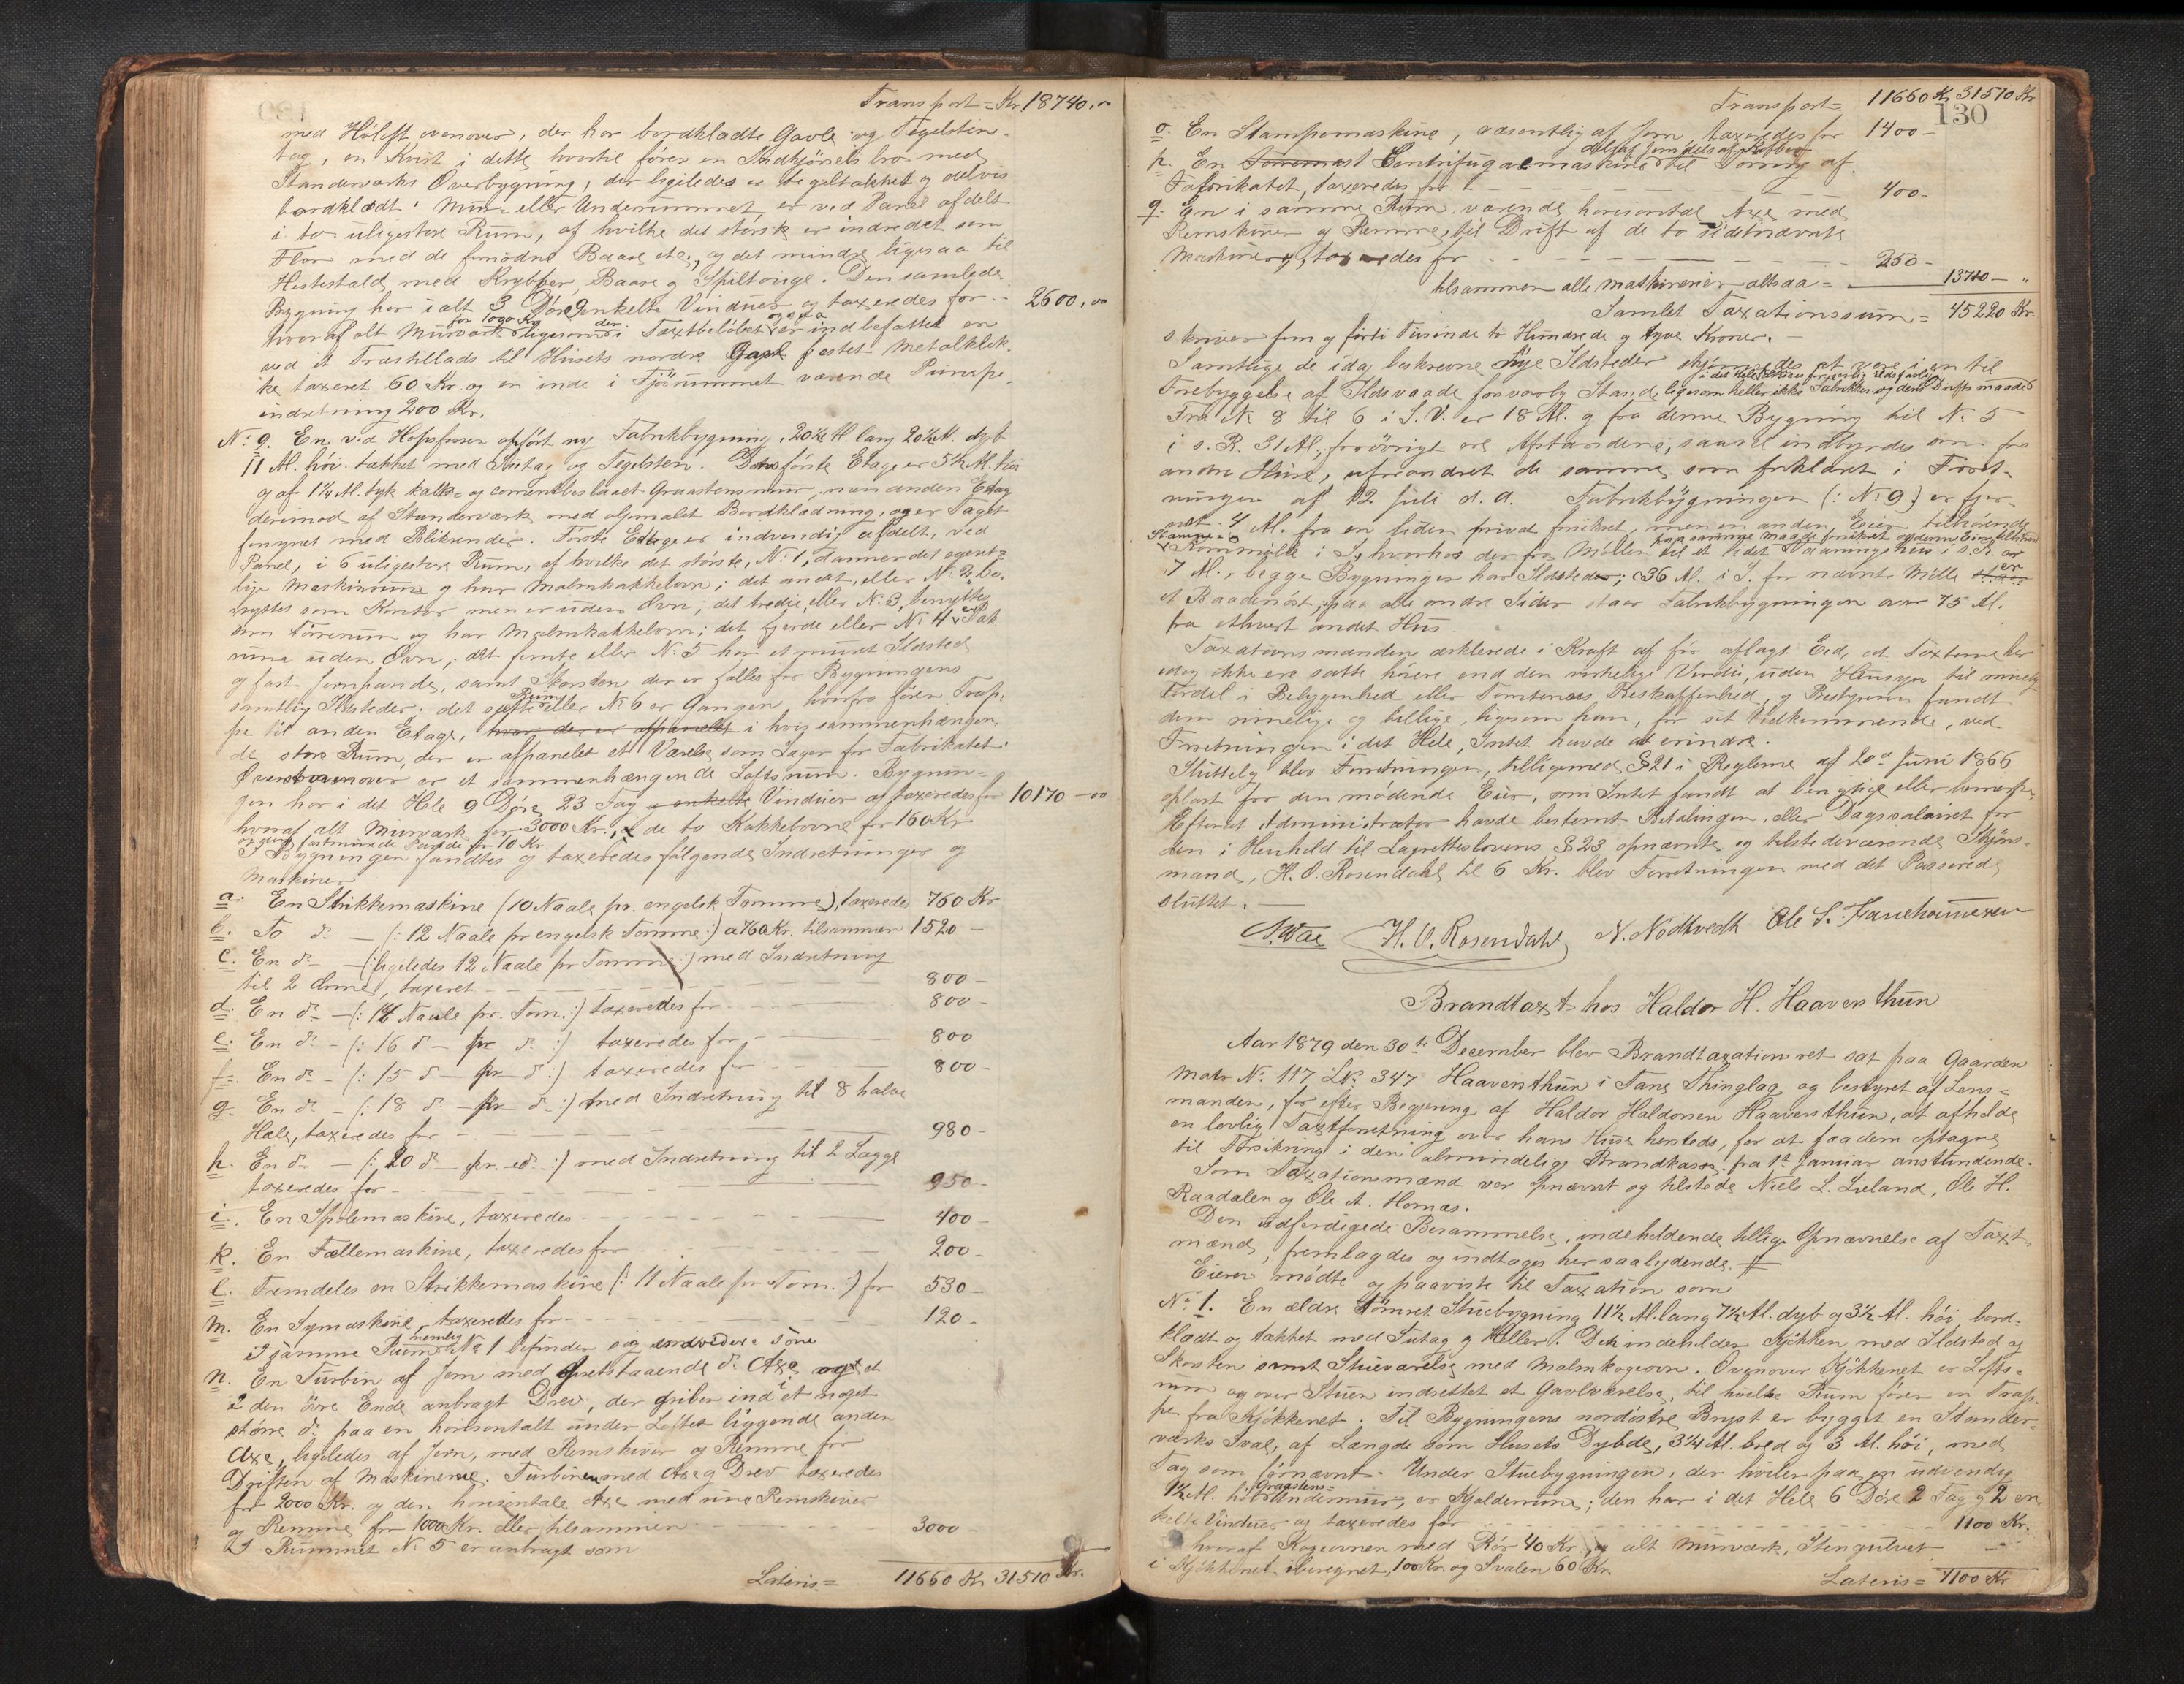 Transport = Kr. 18740,00
med Höloft ovenover, der har bordklædte Gavle og Tegelsten-
tag, en Kvist i dette hvortil fører en Indkjörselsbro med
Standerværks Overbygning, der ligeledes er tegeltækket og delvis
bordklædt. Mur- eller Underrummet er ved Panel afdelt
i to uligestore Rum, af hvilke det største er indredet som
Flor med de fornødne Baase etc., og det mindre ligesaa til
Hestestald med Krybber, Baase og Spiltouge. Den samlede
Bygning har ialt 3 Döre enkelte Vinduer og taxeredes for - 2600,00
hvoraf alt Murværk for 1090 Kr. ligesom der i Taxtbeløbet ogsaa er indbefattet en
ved et Træstillads til Husets nordre Gavl festet Metalklok-
ke taxeret 60 Kr. og en inde i Fjösrummet værende Pumpe-
indretning 200 Kr.
No. 9. En ved Hopsfossen opført ny Fabrikbygning, 20½ Al. lang 20½ Al. dyb
11 Al. høi tækket med Tutag og Tegelsten. Dens første Etage er 5½ Al. høi
og af 1¼ Al. tyk kalk- og cementbeslaaet Graastensmur, men anden Etage
derimod af Standerværk med oljemalet Bordklædning, og er Taget
forsynet med Blikrender. Første Etage er indvendig afdelt, ved
Panel, i 6 uligestore Rum, af hvilke det største, No. 1, danner det egent-
lige Maskinrum og har Malmkakkelovn; det andet, eller No. 2, be-
nyttes som Kontor men er uden Ovn; det tredie, eller No. 3, benyttes
som törrerum og har Malmkakkelovn; det fjerde eller No. 4 er Pak-
rum uden Ovn; det femte eller No. 5 har et muret Ildsted
og fast Jernpande, samt Skorsten der er fælles for Bygningens
samtlige Ildsteder; det sjette Rum eller No. 6 er Gangen hvorfra fører Trap-
pe til anden Etage, hvor der er afpanelet i hvis sammenhængen-
de store Rum, der er afpanelet et Værelse som Lager for Fabrikatet.
Øverst ovenover er et sammenhængende Loftsrum. Bygnin-
gen har i det Hele 9 Döre 23 Fag enkelte Vinduer og taxeredes for 10170 - 00
hvoraf alt Murværk for 3000 Kr., de to Kakkelovne for 160 Kr.
og den fastmurede Pande for 10 Kr.
I Bygningen fandtes og taxeredes følgende Indretninger og
Maskiner
a. En Strikkemaskine (10 Naale pr. engelsk Tomme), taxeredes 760 Kr
b. To do. - (: 12 Naale pr engelsk Tomme :) a 760 Kr. tilsammen 1520 -
c. En do. - (: ligeledes 12 Naale pr Tomme :) med Indretning
til 2 Ærmer, taxeret - 800 -
d. En do - (: 14 Naale pr. Tom. :) taxeredes for 800 -
e. En do - (: 16 do - pr do :) taxeredes for - 800
f. En do - (: 15 do - pr - do :) taxeredes for 800 -
g. En do - (: 18 do - pr - do :) med Indretning til 8 halve
Hæle, taxeredes for - 980 -
h. En do - (: 20 do - pr. do :) med Indretning til 2 Lægge
taxeredes for - 950 -
i. En Spolemaskine, taxeredes - 400 -
k. En Fællemaskine, taxeredes for 200 -
l. Fremdeles en Strikkemaskine (: 11 Naale pr Tom. :) for 530 -
m. En Symaskine, taxeredes for - 120 -
I samme Rum nemlig No. 1 befinder sig
n. En Turbin af Jern med opretstaaende do Axe og et
i den övre Ende anbragt Drev, der griber ind i et noget
større do. paa en horisontalt under Loftet liggende anden
Axe, ligeledes af Jern, med Remskiver og Remme for
Driften af Maskinerne. Turbinen med Axe og Drev taxeredes
for 2000 Kr. og den horisontale Axe med sine Remskiver
og Remme for 1000 Kr. eller tilsammen 3000 -
I Rummet No. 5 er anbragt som
Lateris = 11660 Kr 31510 Kr.
Transport = 11660 Kr 31510 Kr
130
o. En Stampemaskine, væsentlig af Jern, taxeredes for 1400 -
delsaf Jern dels af Kobber
p. En Centrifugalmaskine til Törring af
Fabrikatet, taxeredes for - 400 -
q. En i samme Rum værende horisontal Axe med
Remskiver og Remme, til Drift af de to sidstnævnte
Maskiner, taxeredes for - 250 -
tilsammen alle maskinerier altsaa = 13710 - "
Samlet Taxationssum = 45220 Kr.
skriver fem og firti Tusinde to Hundrede og tyve Kroner. -
Samtlige de idag beskrevne nye Ildsteder skjønnedes at være i en til
Forebyggelse af Ildsvaade forsvarlig Stand, ligesom heller ikke Fabrikken og dens Driftsmaade
Fra No. 8 til 6 i S. V. er 18 Al. og fra denne Bygning til No. 5
i s. R. 31 Al., forövrigt ere Afstandene, saavel indbyrdes som fra
andre Huse, uforandret de samme som forklaret i Forret-
ningen af 12 Juli d. A. Fabrikbygningen (: No. 9 :) er fjer-
net 4 Al. fra en liden privat forsikret, men en anden Eier tilhørende
Stampe- &
Kornmølle i S, hvorhos der fra Møllen til et lidet Vaaningshus i s. R. er
7 Al., begge Bygninger har Ildsteder; 36 Al. i S. for nævnte Mølle er
et Baadenöst; paa alle andre Sider staar Fabrikbygningen over 75 Al.
fra ethvert andet Hus
Taxationsmændene erklærede i Kraft af før aflagt Eed, at Taxterne her
idag ikke ere satte høiere end den virkelige Værdie, uden Hensyn til mulig
Fordel i Beliggenhed eller Tomternes Beskaffenhed, og Bestyreren fandt
dem rimelige og billige, ligesom han, for sit Vedkommende, ved
Forretningen i det Hele, Intet havde at erindre.
Sluttelig blev Forretningen, tilligemed § 21 i Reglerne af 20de Juni 1866
oplæst for den mødende Eier, som Intet fandt at beriktige eller bemærke.
Efterat Administrator havde bestemt Betalingen, eller Dagsalairet for
den i Henhold til Lagretteslovens § 23 opnævnte og tilstedeværende Skjøns-
mand, H. O. Rosendahl til 6 Kr. blev Forretningen med det Passerede
sluttet. -
H. O. Rosendahl N. Nödtvedt Ole S.
Brandtaxt hos Haldor H. Haaventhun
Aar 1879 den 30te December blev Brandtaxationsret sat paa Gaarden
Matr No. 117, LNo. 347 Haaventhun i Tane Thinglag og bestyret af Lens-
manden, for efter Begjæring af Haldor Haldorsen Haaventhun, at afholde
en lovlig Taxtforretning over hans Huse hersteds, for at faa dem optagne
til Forsikring i den almindelige Brandkasse fra 1ste Januar anstundende.
Som Taxationsmænd var opnævnt og tilstede Niels L. Lieland, Ole H.
Raadalen og Ole A. Homas.
Den udferdigede Berammelse, indeholdende tillige Opnævnelse af Taxt-
mænd, fremlagdes og indtages her saalydende. #
Eieren mødte og paaviste til Taxation som
No. 1. En ældre tömret Stuebygning 11½ Al. lang 7½ Al. dyb og 3½ Al. høi, bord-
klædt og tækket med Tutag og Heller. Den indeholder Kjökken med Ildsted og
Skorsten samt Stueværelse med Malmkogeovn. Ovenover Kjökkenet er Lofts-
rum og over Stuen indrettet et Gavlværelse, til hvilke Rum fører en Trap-
pe fra Kjökkenet. Til Bygningens nordöstre Bryst er bygget en Stander-
værks Sval, af Længde som Husets Dybde, 3¼ Al. bred og 3 Al. høi, med
Tag som førnævnt. Under Stuebygningen, der hviler paa en udvendig
1½ Al. høi Graastens- Undermur, er Kjælderrum; den har i det Hele 6 Döre 2 Fag og 2 en-
kelte Vinduer og taxeredes for - 1100 Kr.
hvoraf Kogeovnen med Rör 40 Kr., og alt Murværk, Stengulvet
i Kjökkenet iberegnet, 100 Kr. og Svalen 60 Kr.
Lateris = 1100 Kr